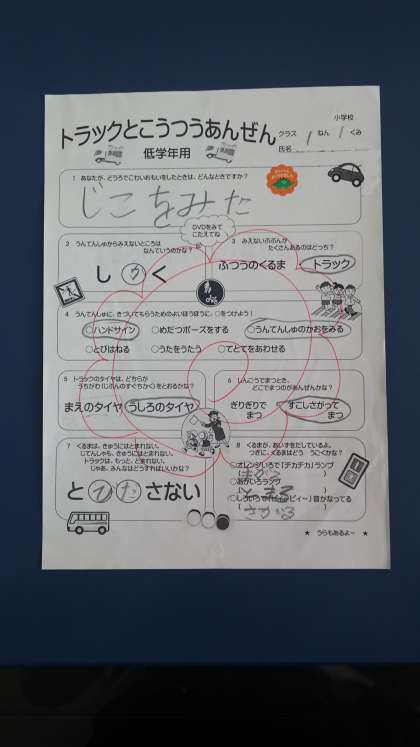 小学校
トラックとこうつうあんぜん
クラス 1 ねん 1 くみ
低学年用
氏名
1 あなたが、どうろでこわいおもいをしたときは、どんなときですか？
じこをみた
DVDをみて
こたえてね
2 うんてんしゅからみえないところは
なんていうのかな？
し かく
3 みえないぶぶんが
たくさんあるのはどっち？
ふつうのくるま トラック
4 うんてんしゅに、きづいてもらうためのよいほうほうに、○をつけよう！
○ハンドサイン ○めだつポーズをする ○うんてんしゅのかおをみる
○とびはねる ○うたをうたう ○てとてをあわせる
5 トラックのタイヤは、どちらが
うちがわ（じぶんのすぐちかく）をとおるかな？
まえのタイヤ うしろのタイヤ
6 しんごうでまつとき、
どこでまつのがあんぜんかな？
ぎりぎりで
まつ
すこしさがって
まつ
7 くるまは、きゅうにはとまれない。
じてんしゃも、きゅうにはとまれない。
トラックは、もっと、とまれない。
じゃあ、みんなはどうすればいいかな？
と びだ さない
8 くるまが、あいずをだしているよ。
つぎに、くるまはどう うごくかな？
○オレンジいろで「チカチカ」ランプ
( まがる )
○あかいろランプ
( とまる )
○しろいろで「ピィ」「ピィー」音がなってる
( さがる )
★ うらもあるよー ★